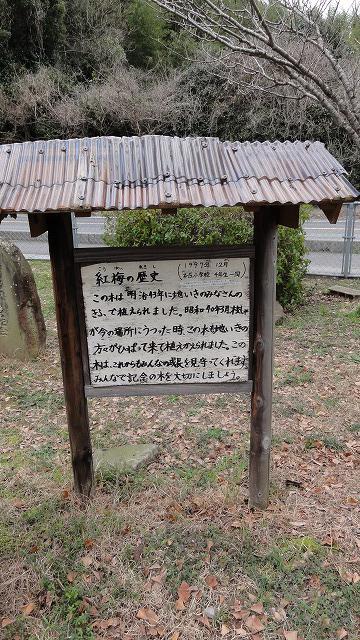 紅梅の歴史
こうばい れきし
1997年12月
小学校 4年生一同
この木は明治43年に地いきのみなさんの
で植えられました。昭和40年3月校しゃ
が今の場所にうつった時、この木も地いきの
方々がひっぱって来て植えかえられました。この
木は、これからもみんなの成長を見守ってくれます。
みんなで記念の木を大切にしましょう。